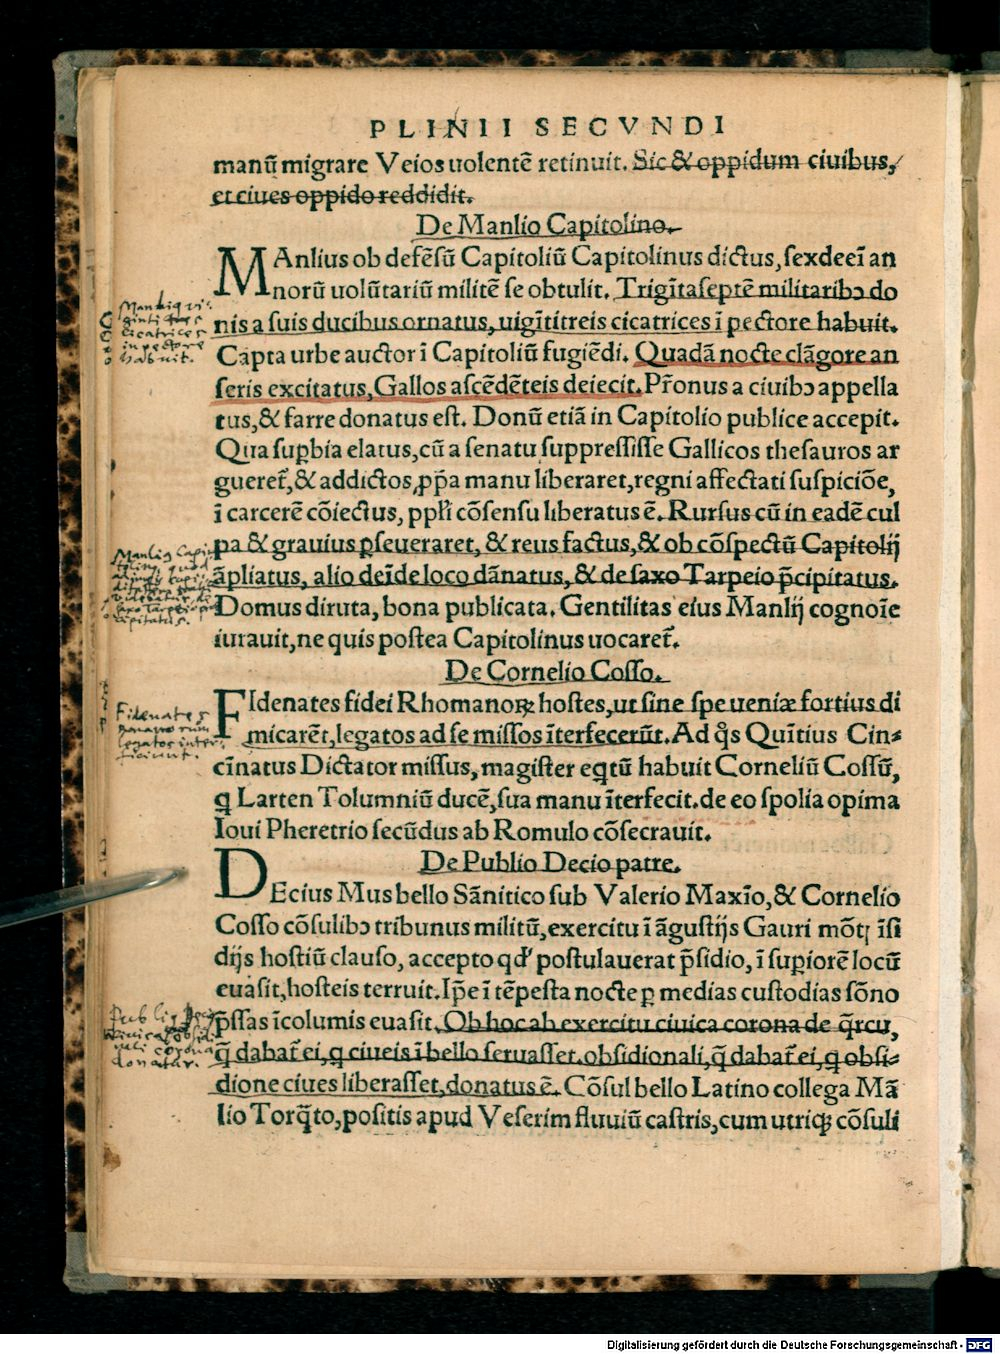 PLINII SECVNDI
manū migrare Veios uolentē retinuit. Sic & oppidum ciuibus,
et ciues oppido reddidit.
De Manlio Capitolino.
MAnlius ob defēsū Capitoliū Capitolinus dictus, sexdecī an
norū uolūtariū militē se obtulit. Trigītaseptē militaribꝰ do
nis a suis ducibus ornatus, uigītitreis cicatrices ī pectore habuit.
Capta urbe auctor ī Capitoliū fugiēdi. Quadā nocte clāgore an
seris excitatus, Gallos ascēdēteis deiecit. Pr̄onus a ciuibꝰ appella
tus, & farre donatus est. Donū etiā in Capitolio publice accepit.
Qua suꝑbia elatus, cū a senatu suppressisse Gallicos thesauros ar
gueret̄, & addictos, ꝓp̄a manu liberaret, regni affectati suspiciōe,
ī carcerē cōiectus, ppl̄i cōsensu liberatus ē. Rursus cū in eadē cul
pa & grauius ꝑseueraret, & reus factus, & ob cōspectū Capitolij
āpliatus, alio deīde loco dānatus, & de saxo Tarpeio p̄cipitatus.
Domus diruta, bona publicata. Gentilitas eius Manlij cognoīe
iurauit, ne quis postea Capitolinus uocaret̄.
De Cornelio Cosso.
FIdenates fidei Rhomanoꝝ hostes, ut sine spe ueniæ fortius di
micarēt, legatos ad se missos īterfecerūt. Ad q̊s Quītius Cin-
cīnatus Dictator missus, magister eq̄tū habuit Corneliū Cossū,
q Larten Tolumniū ducē, sua manu īterfecit. de eo spolia opima
Ioui Pheretrio secūdus ab Romulo cōsecrauit.
De Publio Decio patre.
DEcius Mus bello Sānitico sub Valerio Maxīo, & Cornelio
Cosso cōsulibꝰ tribunus militū, exercitu ī āgustijs Gauri mōtꝭ īsi
dijs hostiū clauso, accepto qd' postulauerat p̄sidio, ī suꝑiorē locū
euasit, hosteis terruit. Ip̄e ī tēpesta nocte ꝑ medias custodias sōno
p̄ssas īcolumis euasit. Ob hoc ab exercitu ciuica corona de q̄rcu,
q̄ dabat̄ ei, q ciueis ī bello seruasset. obsidionali, q̄ dabat̄ ei, q obsi-
dione ciues liberasset, donatus ē. Cōsul bello Latino collega Mā
lio Torq̄to, positis apud Veserim fluuiū castris, cum utriqꝫ cōsuli
Manliꝰ vi-
ginti tres
cicatrices
in pectore
habuit.
Manliꝰ Capi
tolinꝰ
saxo Tarpeio p̄
cipitatus.
Fidenates
legatos inter
ficiunt.
corona
donatur.
Digitalisierung gefördert durch die Deutsche Forschungsgemeinschaft - DFG